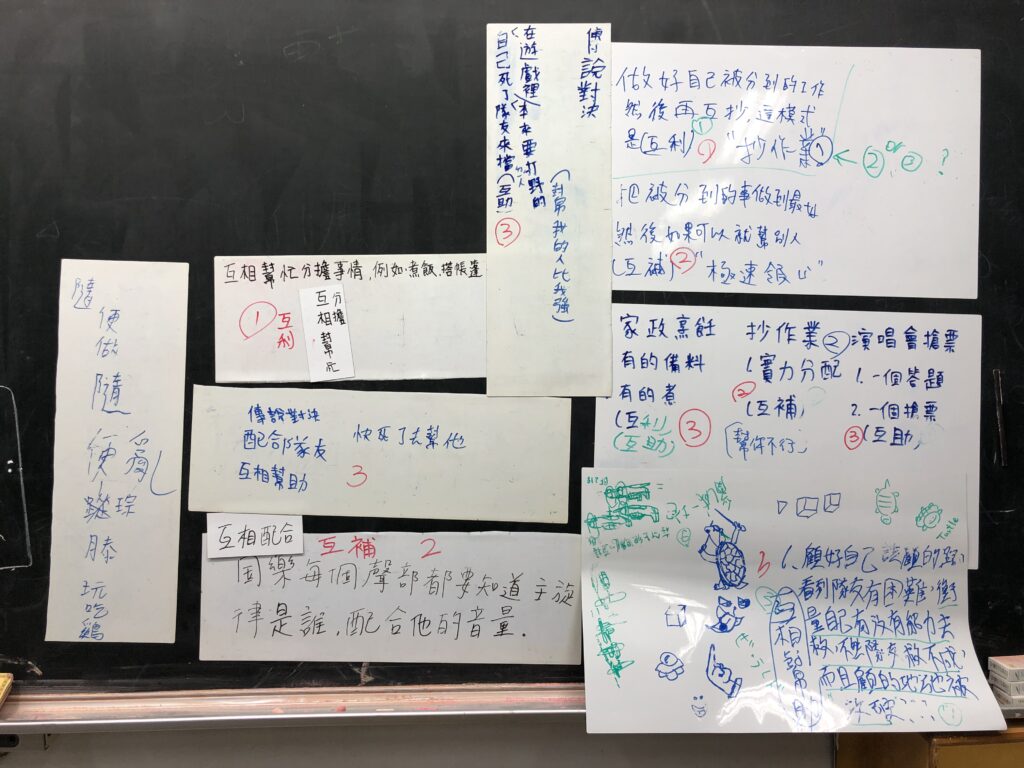 隨
便
做
隨
便 亂
玩吃鷄
互相幫忙分擔事情,例如煮飯,搭帳篷
① 互利
分擔
互相幫忙
傳說對決
配合隊友 快死了去幫他
互相幫助 3
互相配合
互補 2
國樂每個聲部都要知道主旋
律是誰,配合他的音量.
傳說對決
在遊戲裡本來要打野的
自己死了隊友來擋(互助)
③
(對幫我的人比我強)
做好自己被分到的工作
然後再互抄,這模式
是(互利) ① "抄作業" ← ② or ③ ?
把被分到的事做到最好
然後如果可以就幫別人
(互補) ② "極速領域"
家政烹飪
有的備料
有的煮
(互利)
(互助)
③
抄作業 ②
1.實力分配
②
(互補)
「幫你不行」
演唱會搶票
1.一個答題
2.一個搶票
③ (互助)
Turtle
3
1.顧好自己該顧的路
看到隊友有困難,衡
量自己有沒有能力去
救,不然隊友救不成
而且顧的地也被
互相幫助